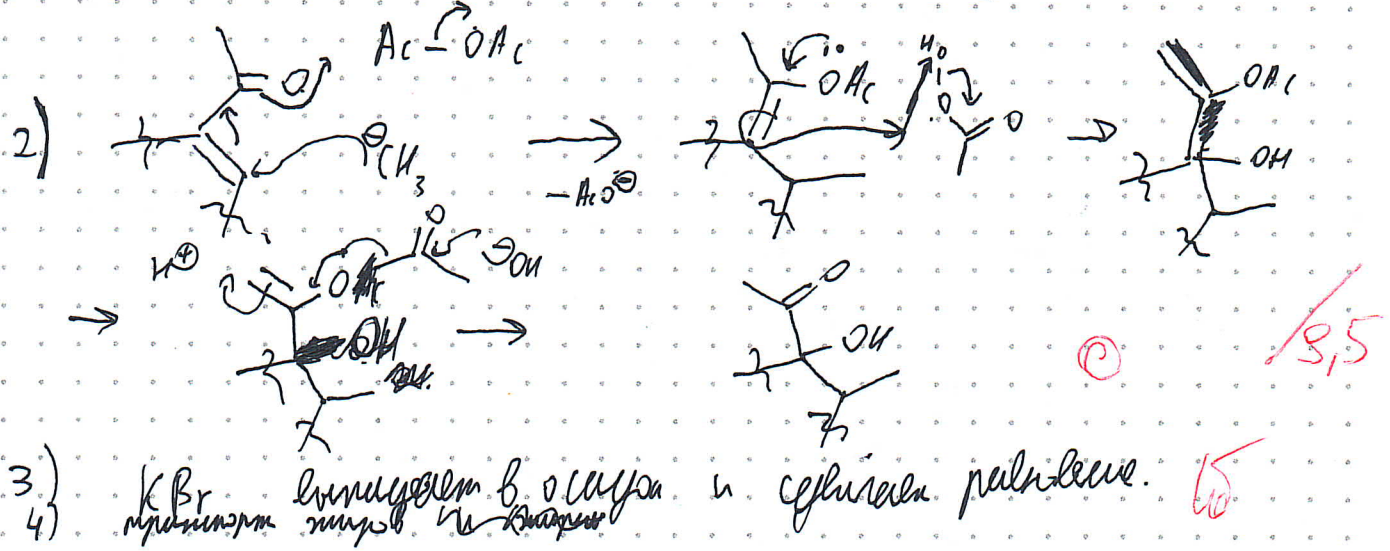 Ac – OAc
2)
O
⊖CH₃
−AcO⊖
OAc
H
O
O
OAc
OH
H⊕
O
O
⊖OH
OH
O
OH
©
3,5
3) KBr выпадает в осадок и сдвигает равновесие. 1б
4) транспорт жиров